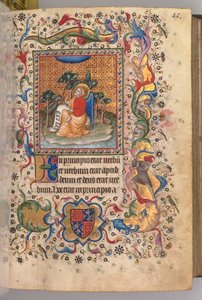 In principio erat verbū
et verbum erat apud
deum et deus erat ver
bum. Hoc erat in principio a